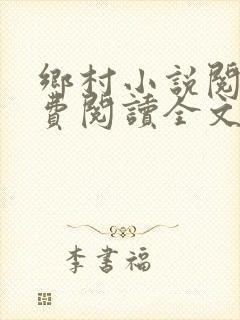 鄉村小説閱
費閱讀全文
李書福